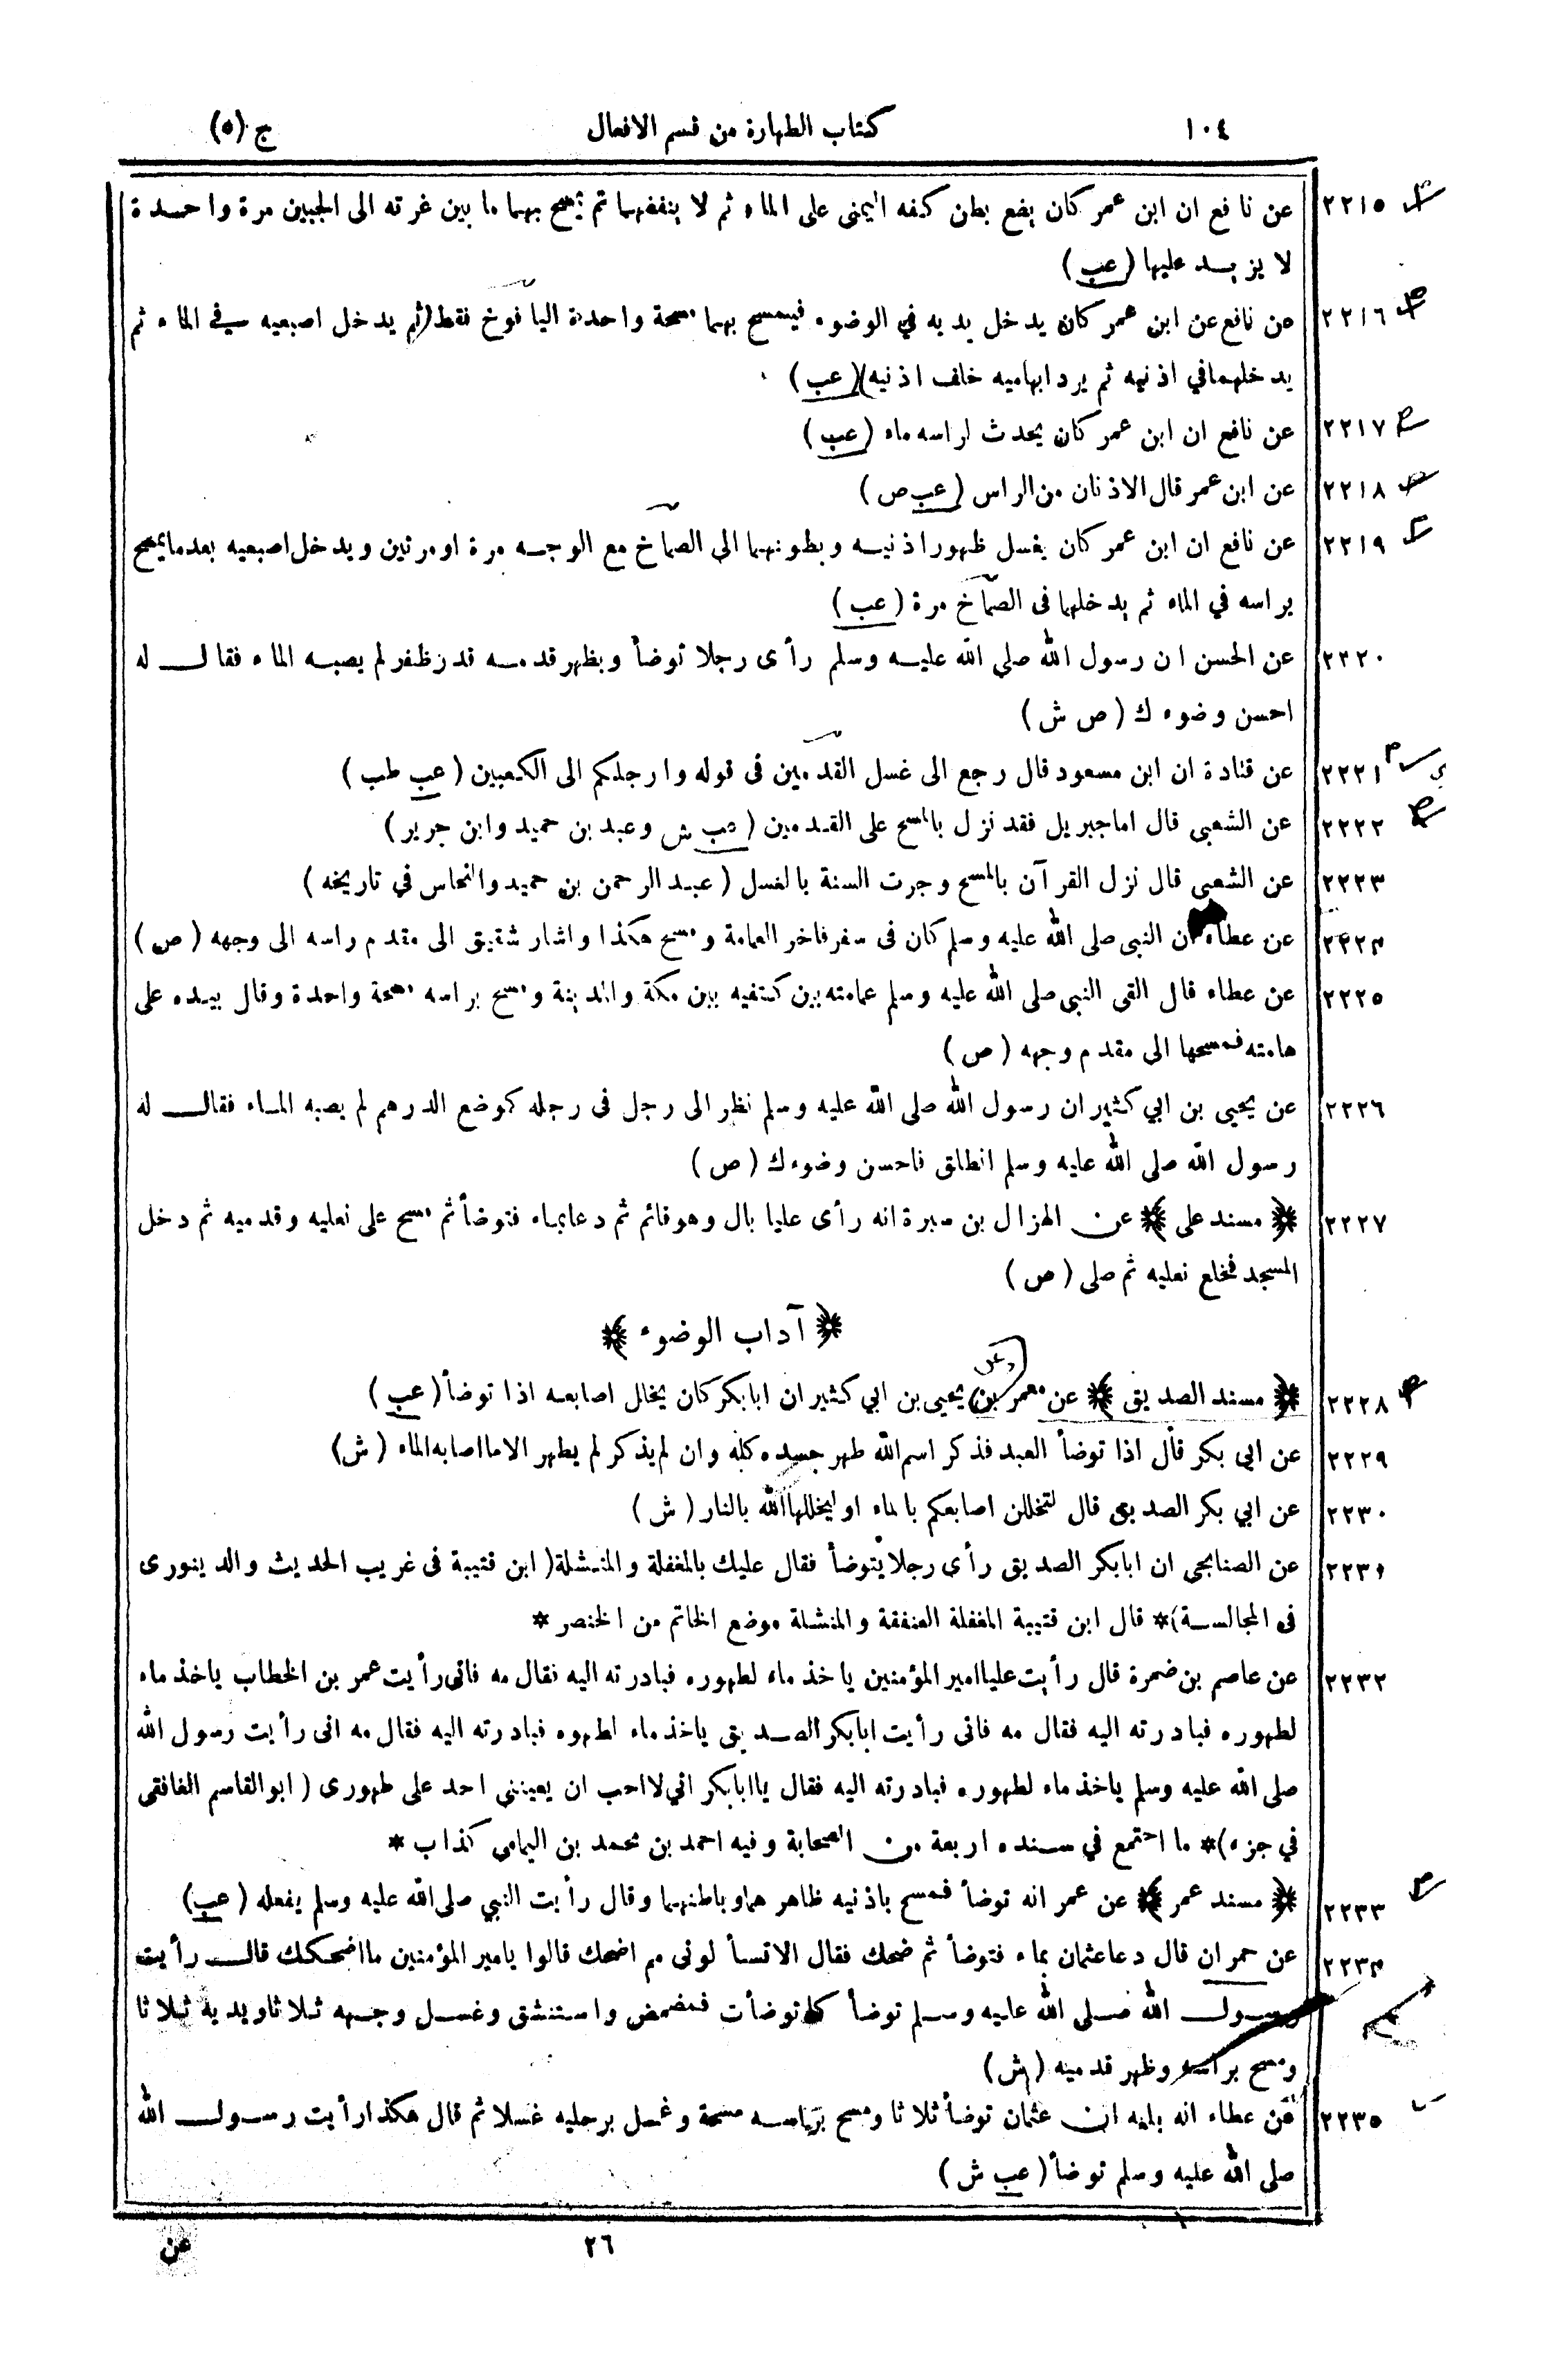 ١٠٤ كتاب الطهارة من قسم الافعال ج (٥)
٢٢١٥ عن نافع ان ابن عمر كان يضع بطن كفه اليمنى على الماء ثم لا ينفضهما ثم يمسح بهما ما بين غرته الى الجبين مرة واحدة
لا يزيد عليها (عب)
٢٢١٦ عن نافع عن ابن عمر كان يدخل يديه في الوضوء فيمسح بهما مسحة واحدة اليافوخ فقط (ثم يدخل اصبعيه في الماء ثم
يدخلهما في اذنيه ثم يرد ابهاميه خلف اذنيه) (عب)
٢٢١٧ عن نافع ان ابن عمر كان يحدث لراسه ماء (عب)
٢٢١٨ عن ابن عمر قال الاذنان من الراس (عب ص)
٢٢١٩ عن نافع ان ابن عمر كان يغسل ظهور اذنيه وبطونهما الى الصماخ مع الوجه مرة او مرتين ويدخل اصبعيه بعد ما يمسح
براسه في الماء ثم يدخلهما فى الصماخ مرة (عب)
٢٢٢٠ عن الحسن ان رسول الله صلي الله عليه وسلم رأى رجلا توضأ وبظهر قدمه قدر ظفر لم يصبه الماء فقال له
احسن وضوءك (ص ش)
٢٢٢١ عن قتادة ان ابن مسعود قال رجع الى غسل القدمين فى قوله وارجلكم الى الكعبين (عب طب)
٢٢٢٢ عن الشعبى قال اما جبريل فقد نزل بالمسح على القدمين (عب ش وعبد بن حميد وابن جرير)
٢٢٢٣ عن الشعبى قال نزل القرآن بالمسح وجرت السنة بالغسل (عبد الرحمن بن حميد والنحاس في تاريخه)
٢٢٢٤ عن عطاء ان النبى صلى الله عليه وسلم كان فى سفر فاخر العمامة ومسح هكذا واشار شقيق الى مقدم راسه الى وجهه (ص)
٢٢٢٥ عن عطاء قال القى النبى صلى الله عليه وسلم عمامته بين كتفيه بين مكة والمدينة ومسح براسه مسحة واحدة وقال بيده على
هامته فمسحها الى مقدم وجهه (ص)
٢٢٢٦ عن يحيى بن ابي كثير ان رسول الله صلى الله عليه وسلم نظر الى رجل فى رجله كموضع الدرهم لم يصبه الماء فقال له
رسول الله صلى الله عليه وسلم انطلق فاحسن وضوءك (ص)
٢٢٢٧ ﴿ مسند على ﴾ عن الهزال بن سبرة انه رأى عليا بال وهو قائم ثم دعا بماء فتوضأ ثم مسح على نعليه وقدميه ثم دخل
المسجد فخلع نعليه ثم صلى (ص)
﴿ آداب الوضوء ﴾
٢٢٢٨ ﴿ مسند الصديق ﴾ عن معمر بن يحيى بن ابي كثير ان ابا بكر كان يخلل اصابعه اذا توضأ (عب)
٢٢٢٩ عن ابي بكر قال اذا توضأ العبد فذكر اسم الله طهر جسده كله وان لم يذكر لم يطهر الا ما اصابه الماء (ش)
٢٢٣٠ عن ابي بكر الصديق قال لتخللن اصابعكم بالماء او ليخللها الله بالنار (ش)
٢٢٣١ عن الصنابحى ان ابا بكر الصديق رأى رجلا يتوضأ فقال عليك بالمغفلة والمنشلة (ابن قتيبة فى غريب الحديث والدينورى
فى المجالسة)* قال ابن قتيبة المغفلة العنفقة والمنشلة موضع الخاتم من الخنصر *
٢٢٣٢ عن عاصم بن ضمرة قال رأيت عليا امير المؤمنين ياخذ ماء لطهوره فبادرته اليه فقال مه فانى رأيت عمر بن الخطاب ياخذ ماء
لطهوره فبادرته اليه فقال مه فانى رأيت ابا بكر الصديق ياخذ ماء لطهوه فبادرته اليه فقال مه انى رأيت رسول الله
صلى الله عليه وسلم ياخذ ماء لطهوره فبادرته اليه فقال يا ابا بكر اني لا احب ان يعيننى احد على طهورى (ابو القاسم الغافقى
في جزء)* ما اجتمع في سنده اربعة من الصحابة وفيه احمد بن محمد بن اليمامى كذاب *
٢٢٣٣ ﴿ مسند عمر ﴾ عن عمر انه توضأ فمسح باذنيه ظاهرهما وباطنهما وقال رأيت النبي صلى الله عليه وسلم يفعله (عب)
٢٢٣٤ عن حمران قال دعا عثمان بماء فتوضأ ثم ضحك فقال الا تسألونى مم اضحك قالوا يا امير المؤمنين ما اضحكك قال رأيت
رسول الله صلى الله عليه وسلم توضأ كما توضأت فمضمض واستنشق وغسل وجهه ثلاثا ويديه ثلاثا
ومسح براسه وظهر قدميه (ش)
٢٢٣٥ عن عطاء انه بلغه ان عثمان توضأ ثلاثا ومسح براسه مسحة وغسل برجليه غسلا ثم قال هكذا رأيت رسول الله
صلى الله عليه وسلم توضأ (عب ش)
٢٦
عن